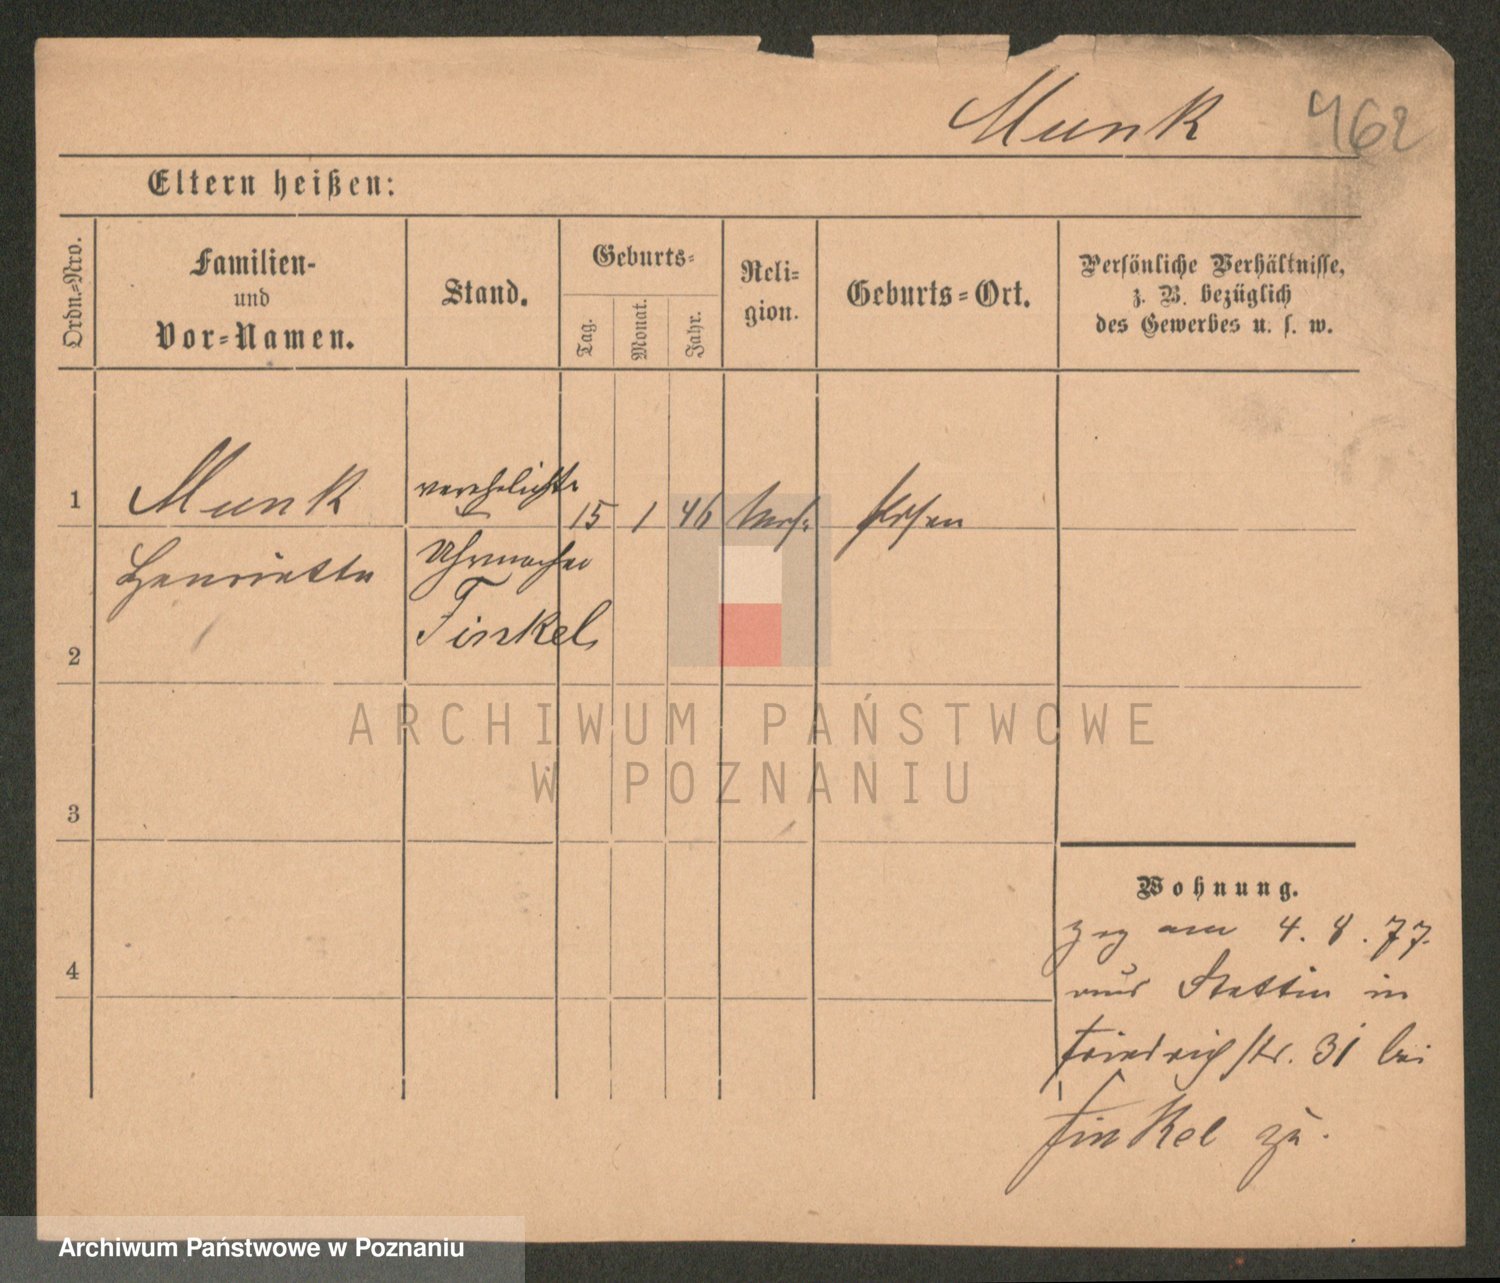 Munk 462
Eltern heißen:
Ordn.-Nro.
Familien-
und
Vor-Namen.
Stand.
Geburts-
Tag.
Monat.
Jahr.
Reli-
gion.
Geburts-Ort.
Persönliche Verhältnisse,
z. B. bezüglich
des Gewerbes u. s. w.
1
Munk
verehelichte
15 1 46 mos. Posen
Henriette
Uhrmacher
Finkel
2
3
4
Wohnung.
zog am 4. 8. 77.
aus Stettin in
Friedrichstr. 31 bei
Finkel zu.
ARCHIWUM PAŃSTWOWE
W POZNANIU
Archiwum Państwowe w Poznaniu